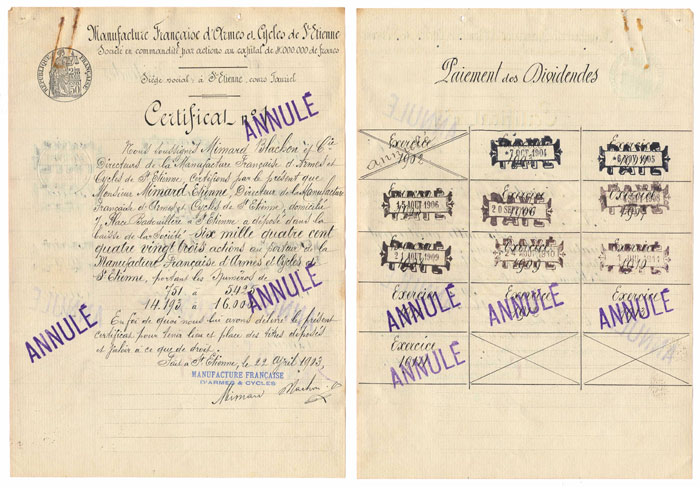 Manufacture Française d'Armes et Cycles de St Etienne
Société en commandite par actions au capital de francs
RÉPUBLIQUE FRANÇAISE
Siège social : à St Etienne, cours Fauriel
Certificat n° 1
ANNULÉ
Nous soussignés Mimard Blachon & Cie
Directeurs de la Manufacture Française d'Armes et
Cycles de St Etienne, Certifions par le présent que
Monsieur Mimard Etienne, Directeur de la Manufacture
Française d'Armes et Cycles de St Etienne, domicilié
7, Place Badouillère à St Etienne a déposé dans la
Caisse de la Société Six mille quatre cent
quatre vingt trois actions au porteur de la
Manufacture Française d'Armes et Cycles de
St Etienne, portant les Numéros de
751 à
14.193 à 16.000
ANNULÉ
ANNULÉ
En foi de quoi nous lui avons délivré le présent
certificat pour tenir lieu et place des titres déposés
et valoir à ce que de droit.
Fait à St Etienne, le 22 Avril 1903
MANUFACTURE FRANÇAISE
D'ARMES & CYCLES
Mimard Blachon
Paiement des Dividendes
Exercice
1903
7 OCT. 1904
1905
15 AOUT 1906
20 1906
Exercice
21 AOUT 1909
1910
1911
Exercice
ANNULÉ
Exercice
ANNULÉ
Exercice
ANNULÉ
Exercice
ANNULÉ